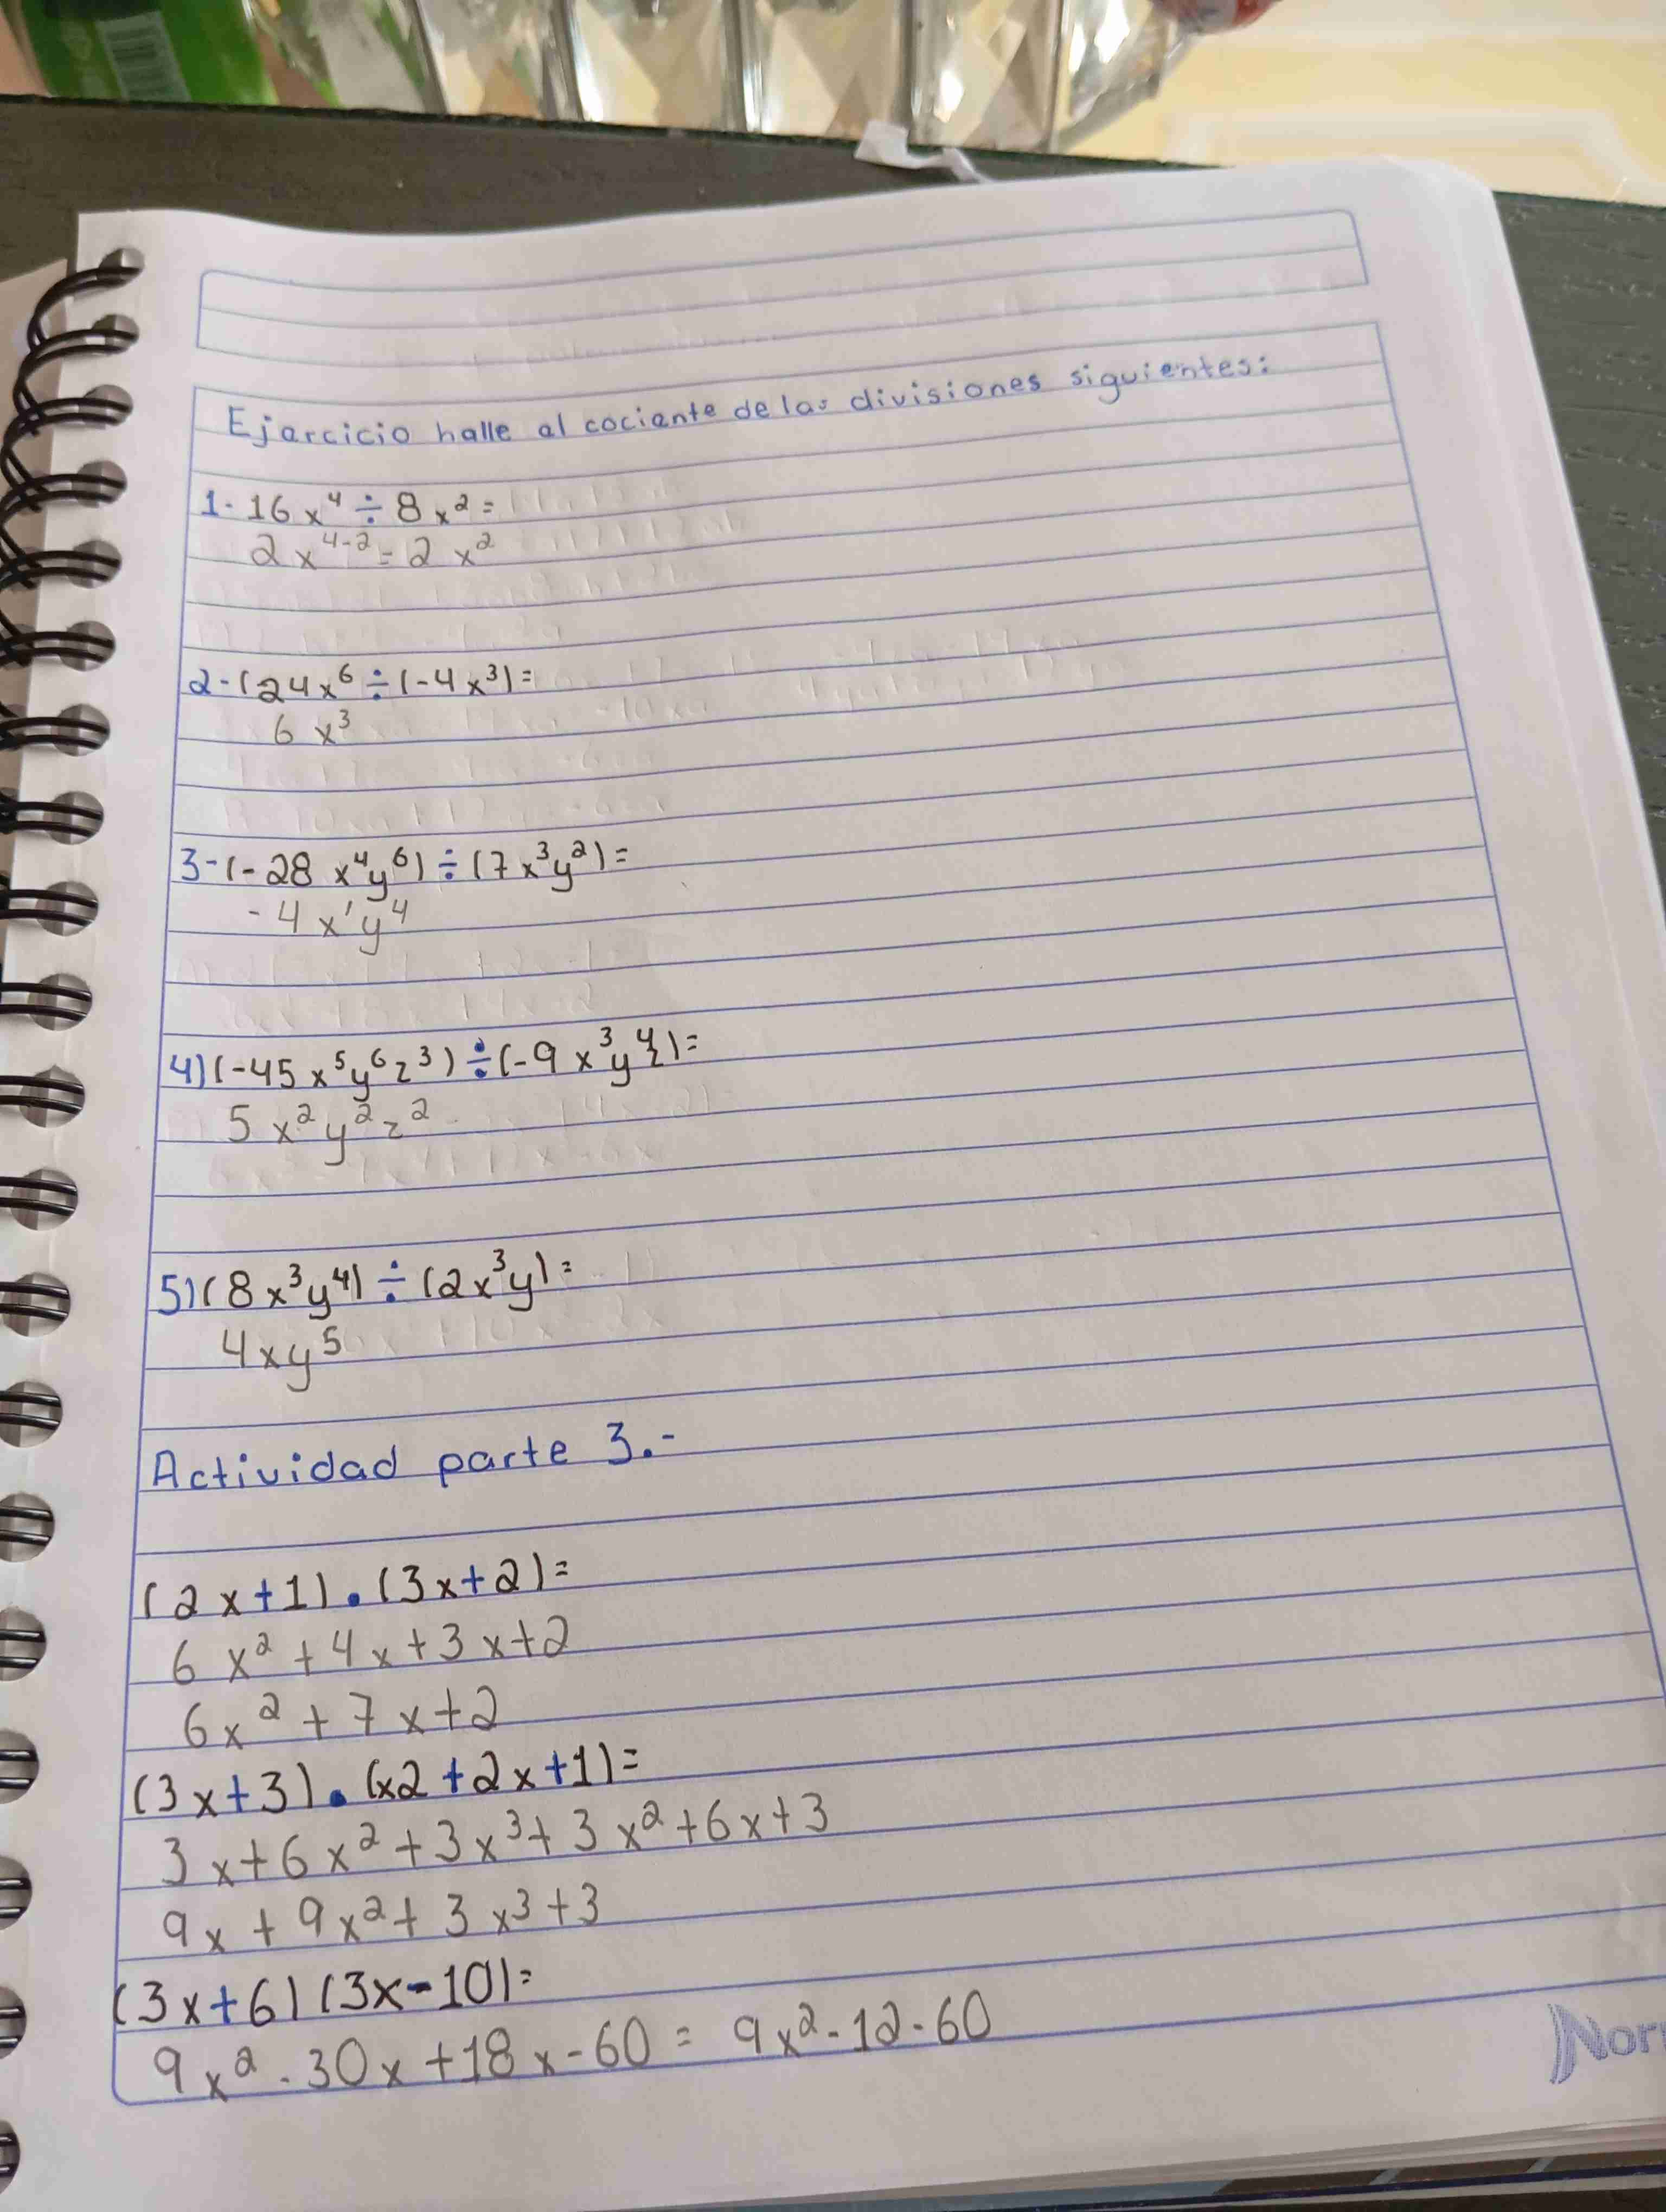 Ejercicio halle el cociente de las divisiones siguientes:
1- 16x⁴ ÷ 8x² =
2x⁴⁻² = 2x²
2- (24x⁶ ÷ (-4x³) =
6x³
3- (-28x⁴y⁶) ÷ (7x³y²) =
-4x¹y⁴
4) (-45x⁵y⁶z³) ÷ (-9x³y⁴z) =
5x²y²z²
5) (8x³y⁴) ÷ (2x³y) =
4xy⁵
Actividad parte 3.-
(2x+1) . (3x+2) =
6x² + 4x + 3x + 2
6x² + 7x + 2
(3x+3) . (x2 + 2x + 1) =
3x + 6x² + 3x³ + 3x² + 6x + 3
9x + 9x² + 3x³ + 3
(3x+6) (3x-10) =
9x² - 30x + 18x - 60 = 9x² - 12 - 60
Nor